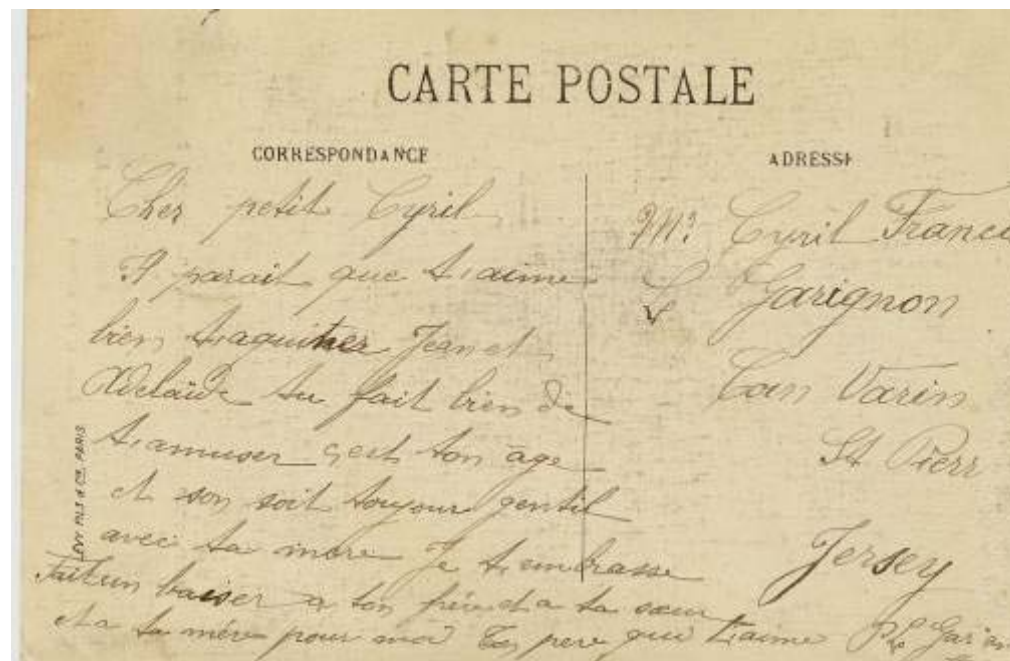 CARTE POSTALE
CORRESPONDANCE
Cher petit Cyril
Il parait que t'aime
bien taquiner Jean et
Adelaïde tu fait bien de
t'amuser c'est ton âge
et soit toujour gentil
avec ta mere Je t'embrasse
Fait un baiser a ton frére et a ta sœur
et a ta mére pour moi Ton pere qui t'aime
ADRESSE
Mr Cyril Franc
Garignon
Coin Varin
St Pierr
Jersey
LEVY FILS & CIE, PARIS